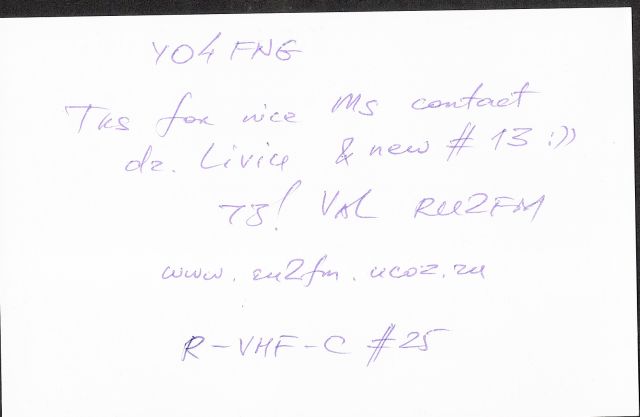 YO4FNG
Tks for nice Ms contact
dr. Liviu & new # 13 :))
73! VAL RU2FM
www.ru2fm.ucoz.ru
R-VHF-C #25